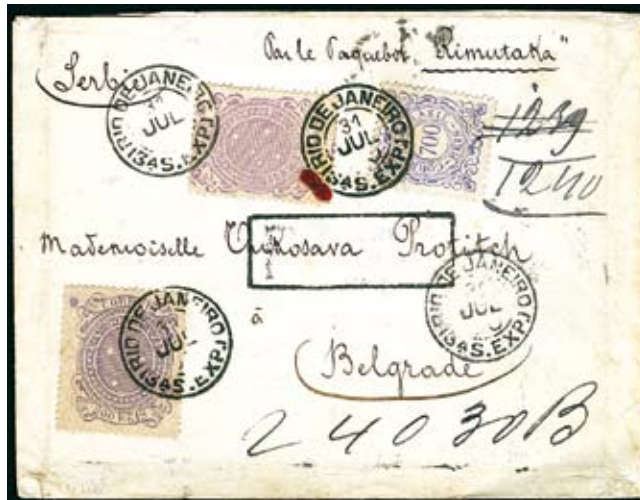 Par le Paquebot "Rimutaka"
Serbie
RIO DE JANEIRO
31
JUL
(13AS.EXP.)
RIO DE JANEIRO
31
JUL
(13AS.EXP.)
700
1239
1240
Mademoiselle Vukosava Protitch
RIO DE JANEIRO
JUL
(13AS.EXP.)
RIO DE JANEIRO
31
JUL
(13AS.EXP.)
à
Belgrade
24030B